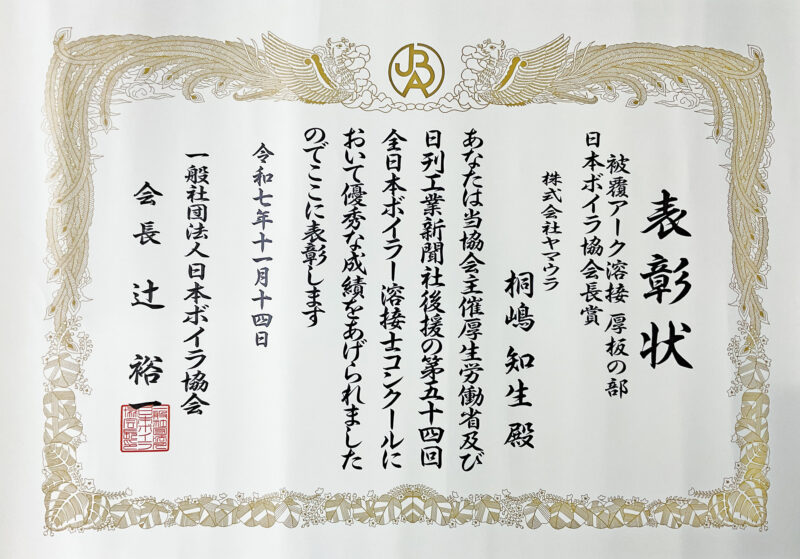 JBA
表彰状
被覆アーク溶接 厚板の部
日本ボイラ協会長賞
株式会社ヤマウラ
桐嶋 知生 殿
あなたは当協会主催厚生労働省及び
日刊工業新聞社後援の第五十四回
全日本ボイラー溶接士コンクールに
おいて優秀な成績をあげられました
のでここに表彰します
令和七年十一月十四日
一般社団法人日本ボイラ協会
会長 辻 裕一